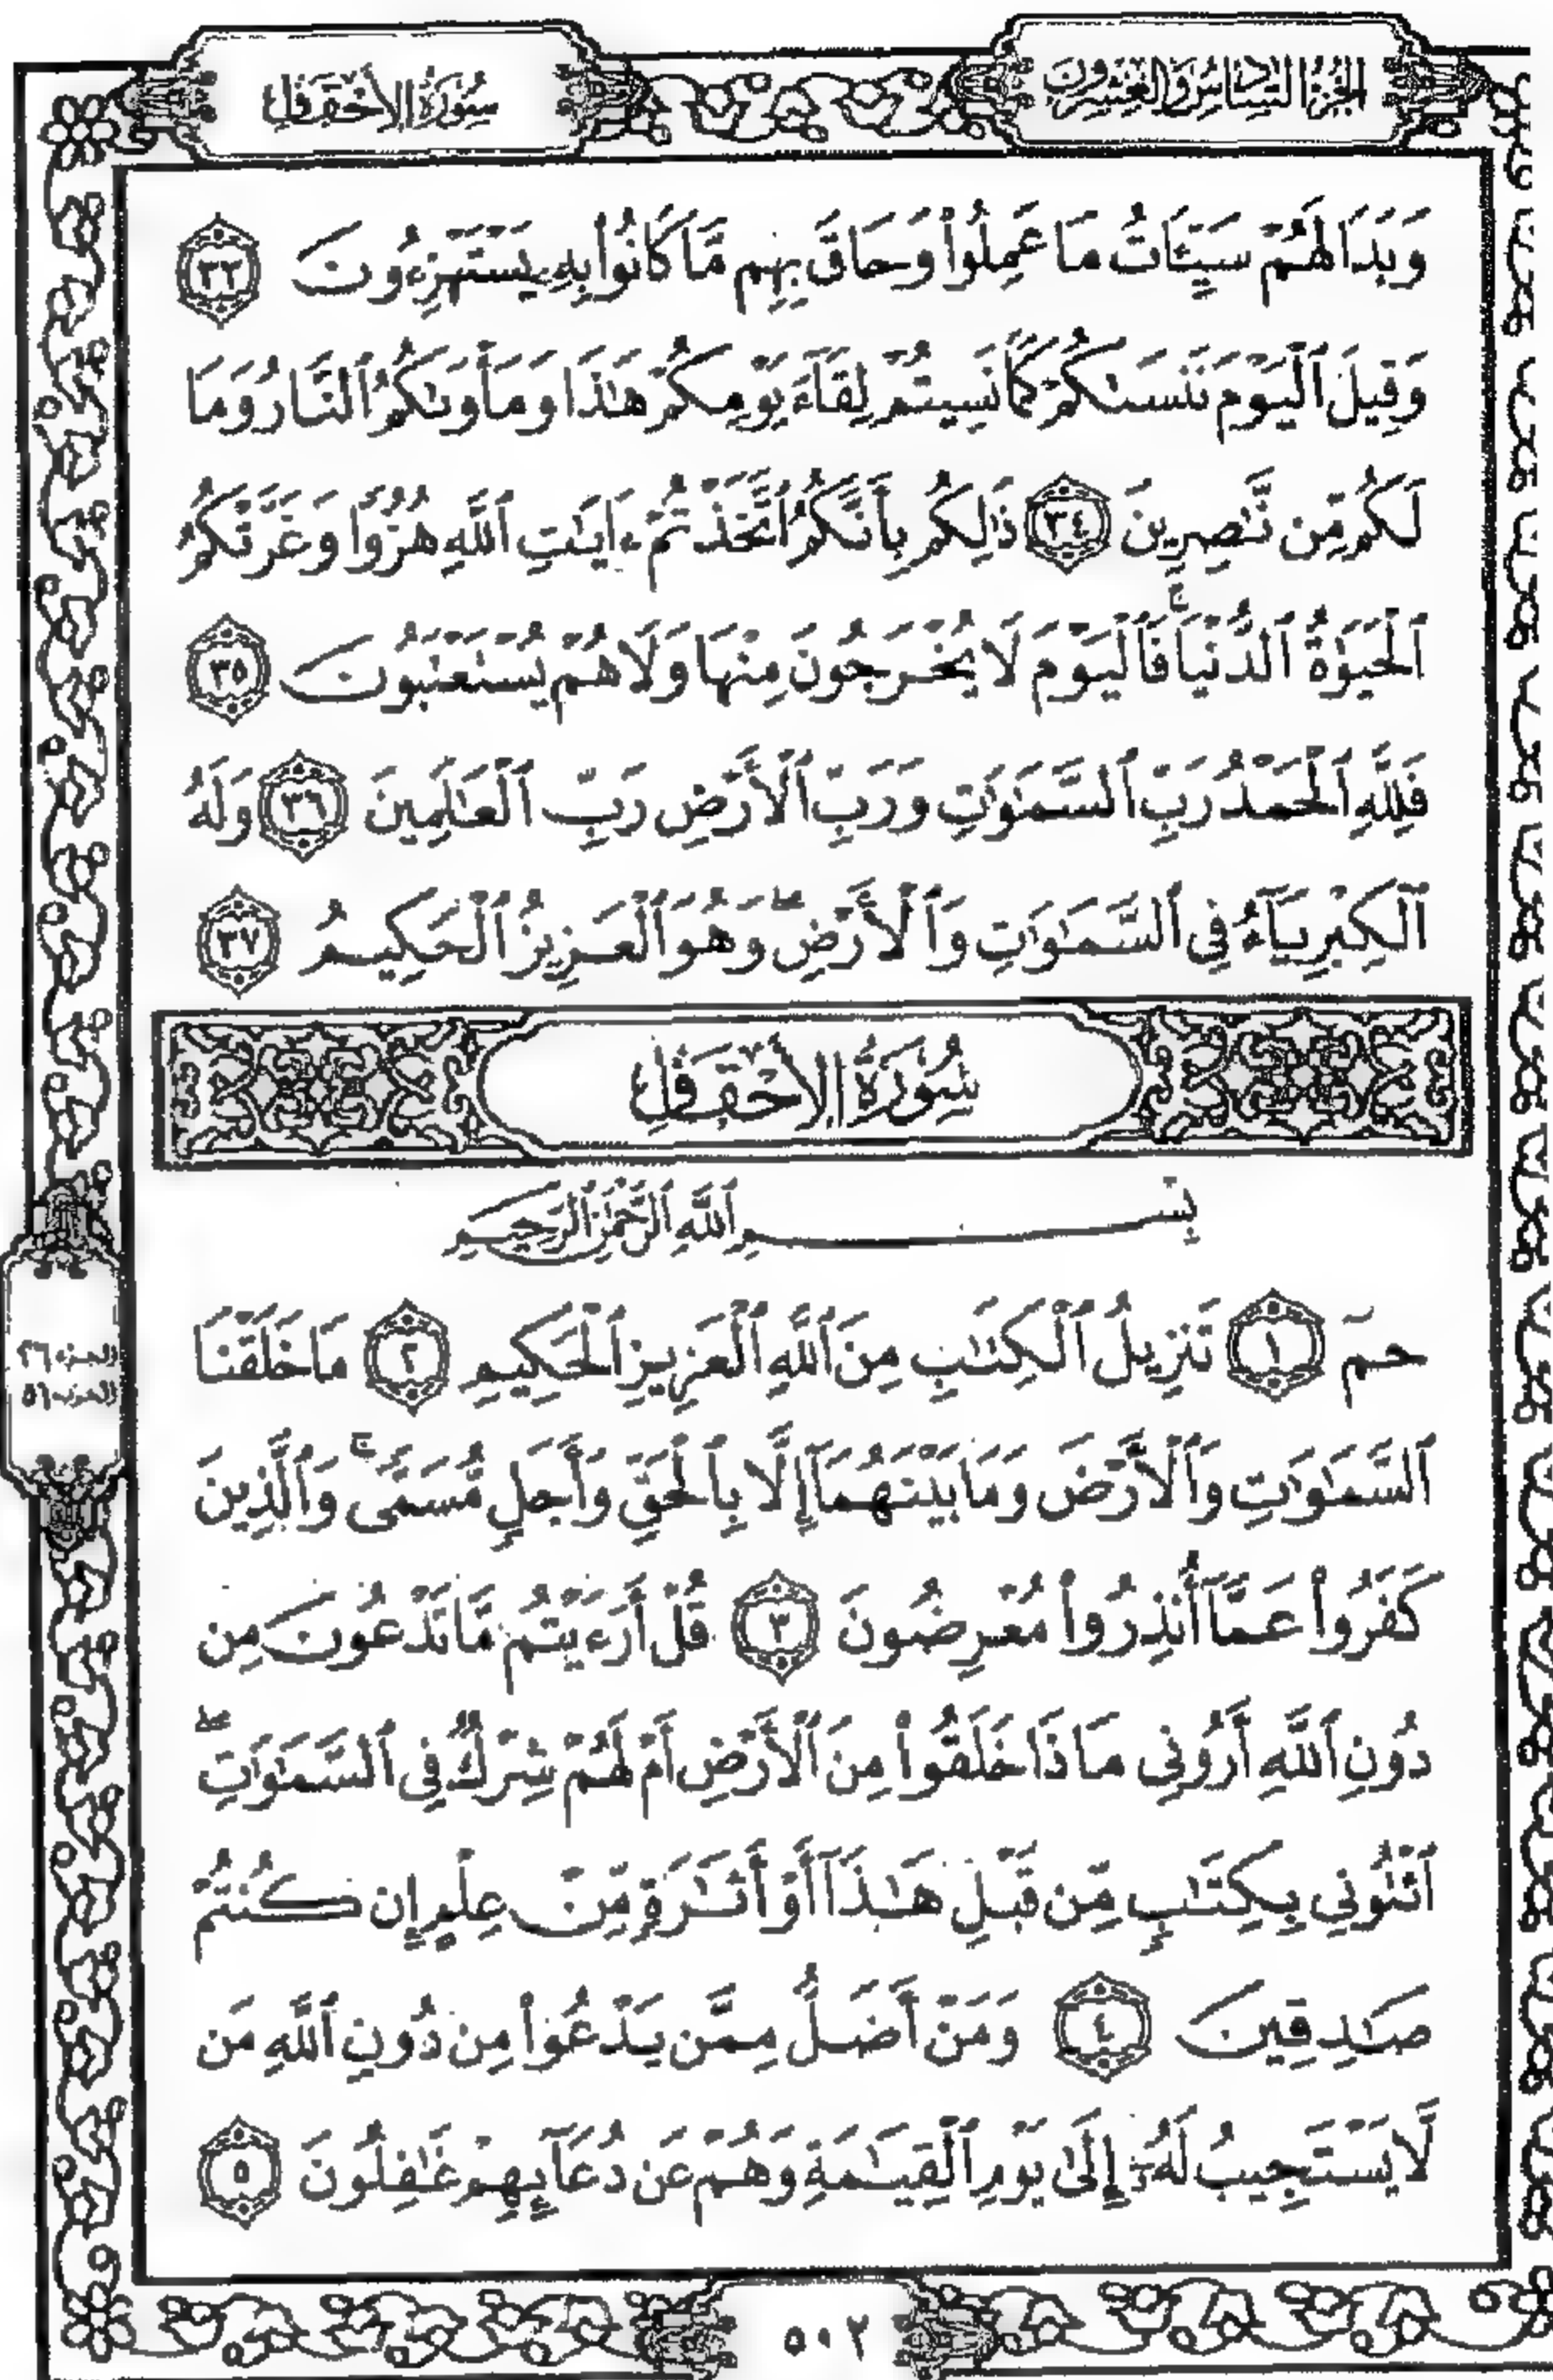 الجزء السادس والعشرون
سورة الأحقاف
وَبَدَا لَهُمْ سَيِّـَٔاتُ مَا عَمِلُوا۟ وَحَاقَ بِهِم مَّا كَانُوا۟ بِهِۦ يَسْتَهْزِءُونَ ٣٣
وَقِيلَ ٱلْيَوْمَ نَنسَىٰكُمْ كَمَا نَسِيتُمْ لِقَآءَ يَوْمِكُمْ هَـٰذَا وَمَأْوَىٰكُمُ ٱلنَّارُ وَمَا
لَكُم مِّن نَّـٰصِرِينَ ٣٤ ذَٰلِكُم بِأَنَّكُمُ ٱتَّخَذْتُمْ ءَايَـٰتِ ٱللَّهِ هُزُوًا وَغَرَّتْكُمُ
ٱلْحَيَوٰةُ ٱلدُّنْيَا ۚ فَٱلْيَوْمَ لَا يُخْرَجُونَ مِنْهَا وَلَا هُمْ يُسْتَعْتَبُونَ ٣٥
فَلِلَّهِ ٱلْحَمْدُ رَبِّ ٱلسَّمَـٰوَٰتِ وَرَبِّ ٱلْأَرْضِ رَبِّ ٱلْعَـٰلَمِينَ ٣٦ وَلَهُ
ٱلْكِبْرِيَآءُ فِى ٱلسَّمَـٰوَٰتِ وَٱلْأَرْضِ ۖ وَهُوَ ٱلْعَزِيزُ ٱلْحَكِيمُ ٣٧
سُورَةُ الأَحْقَافِ
بِسْمِ ٱللَّهِ ٱلرَّحْمَـٰنِ ٱلرَّحِيمِ
حمٓ ١ تَنزِيلُ ٱلْكِتَـٰبِ مِنَ ٱللَّهِ ٱلْعَزِيزِ ٱلْحَكِيمِ ٢ مَا خَلَقْنَا
ٱلسَّمَـٰوَٰتِ وَٱلْأَرْضَ وَمَا بَيْنَهُمَآ إِلَّا بِٱلْحَقِّ وَأَجَلٍ مُّسَمًّى ۚ وَٱلَّذِينَ
كَفَرُوا۟ عَمَّآ أُنذِرُوا۟ مُعْرِضُونَ ٣ قُلْ أَرَءَيْتُم مَّا تَدْعُونَ مِن
دُونِ ٱللَّهِ أَرُونِى مَاذَا خَلَقُوا۟ مِنَ ٱلْأَرْضِ أَمْ لَهُمْ شِرْكٌ فِى ٱلسَّمَـٰوَٰتِ ۖ
ٱئْتُونِى بِكِتَـٰبٍ مِّن قَبْلِ هَـٰذَآ أَوْ أَثَـٰرَةٍ مِّنْ عِلْمٍ إِن كُنتُمْ
صَـٰدِقِينَ ٤ وَمَنْ أَضَلُّ مِمَّن يَدْعُوا۟ مِن دُونِ ٱللَّهِ مَن
لَّا يَسْتَجِيبُ لَهُۥٓ إِلَىٰ يَوْمِ ٱلْقِيَـٰمَةِ وَهُمْ عَن دُعَآئِهِمْ غَـٰفِلُونَ ٥
الجزء ٢٦
الحزب ٥١
٥٠٢